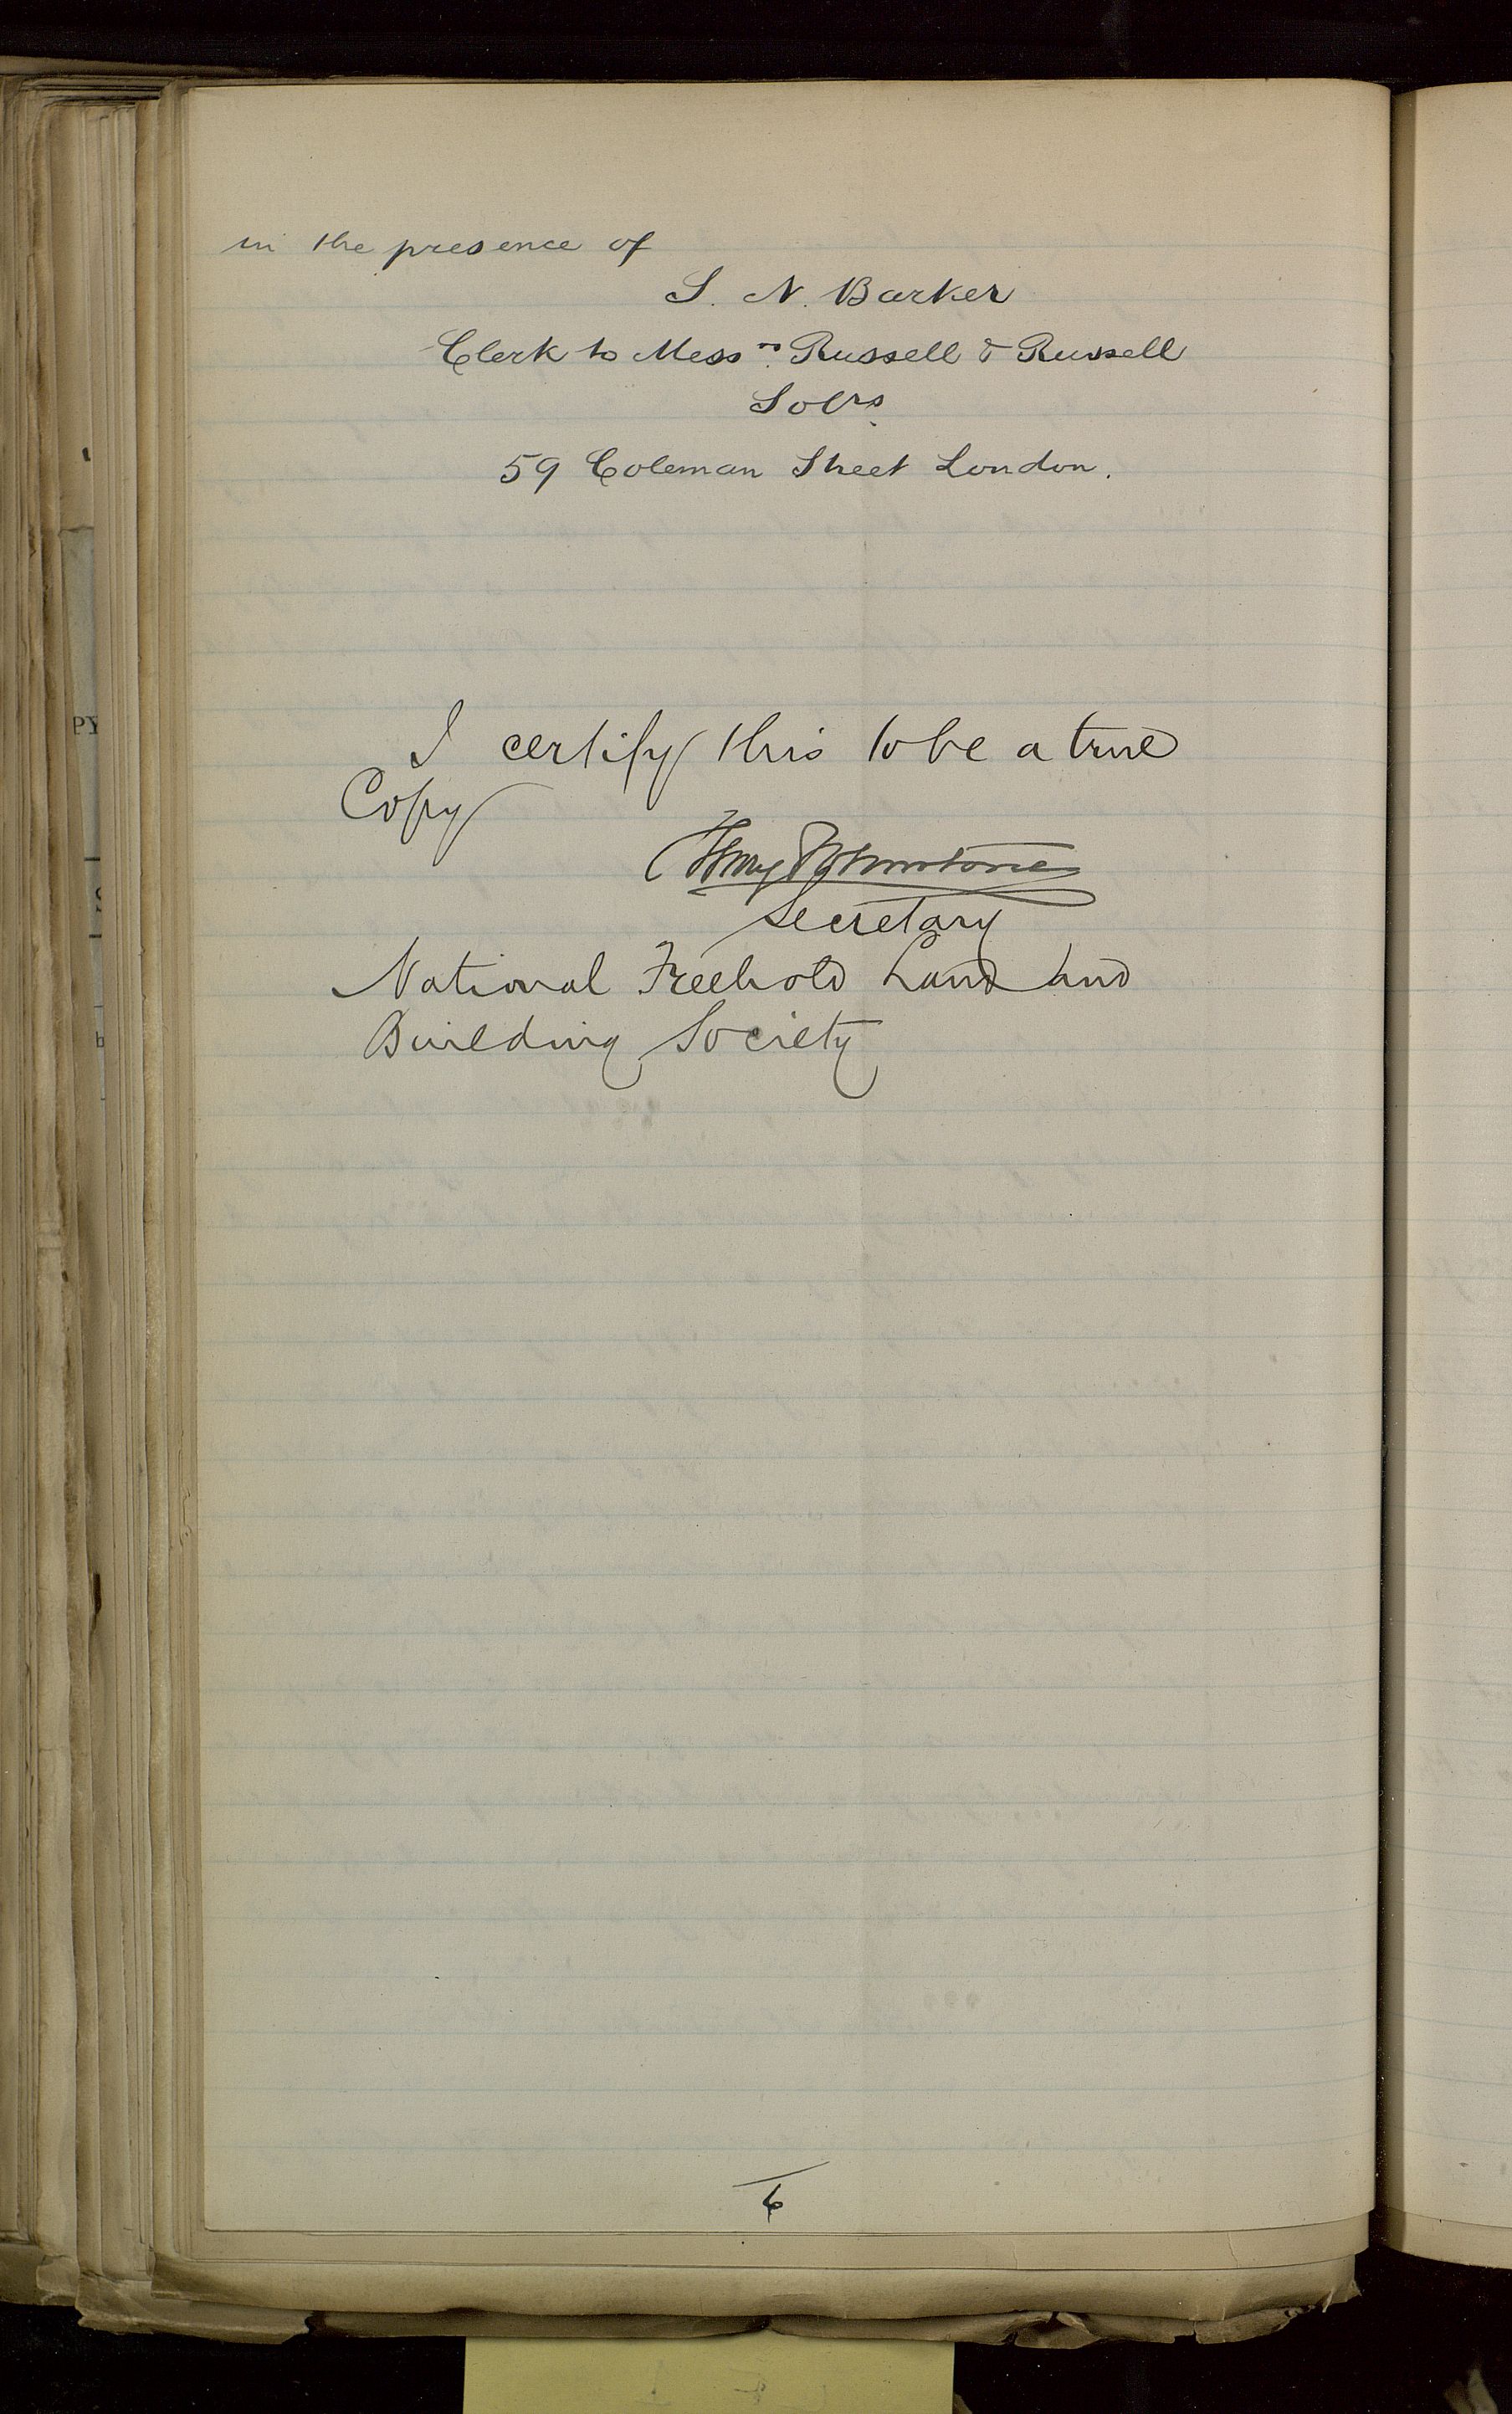 in the presence of
S. N. Barker
Clerk to Messrs. Russell & Russell
Solrs.
59 Coleman Street London.
I certify this to be a true
Copy
Secretary
National Freehold Land and
Building Society
6
PY